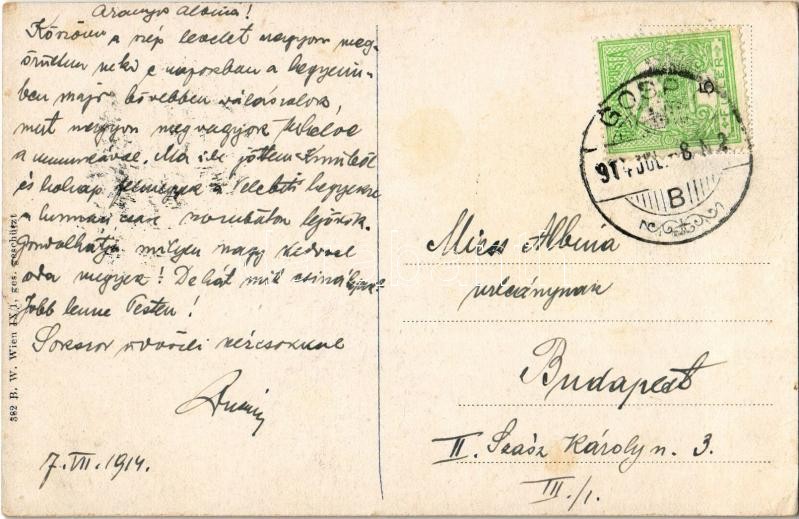 Aranyos Albina!
Köszönöm a szép levelet nagyon meg-
örültem neki e napokban a hegyem-
ben majd bővebben válaszolok,
mert nagyon meg vagyok terhelve
a munkával. Ma ide jöttem
és holnap felmegyek a Velebit hegyekre
a hummi csak szombaton lejövök.
Gondolhatja milyen nagy kedvvel
oda megyek! De hát mit csináljak
Jobb lenne Pesten!
Sokszor üdvözli kézcsókkal
7. VII. 1914.
382 B. W. Wien IX/1, ges. geschützt
GOSP
914 JUL. -8 N 2
B
Albina
urleánynak
Budapest
II. Szász Károly u. 3.
III./1.